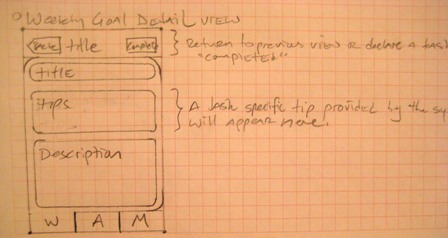 Weekly Goal Detail View
title
Complete
Return to previous view or declare a task
"completed"
title
tips
A task specific tip provided by the sy
will appear here.
Description
W A M